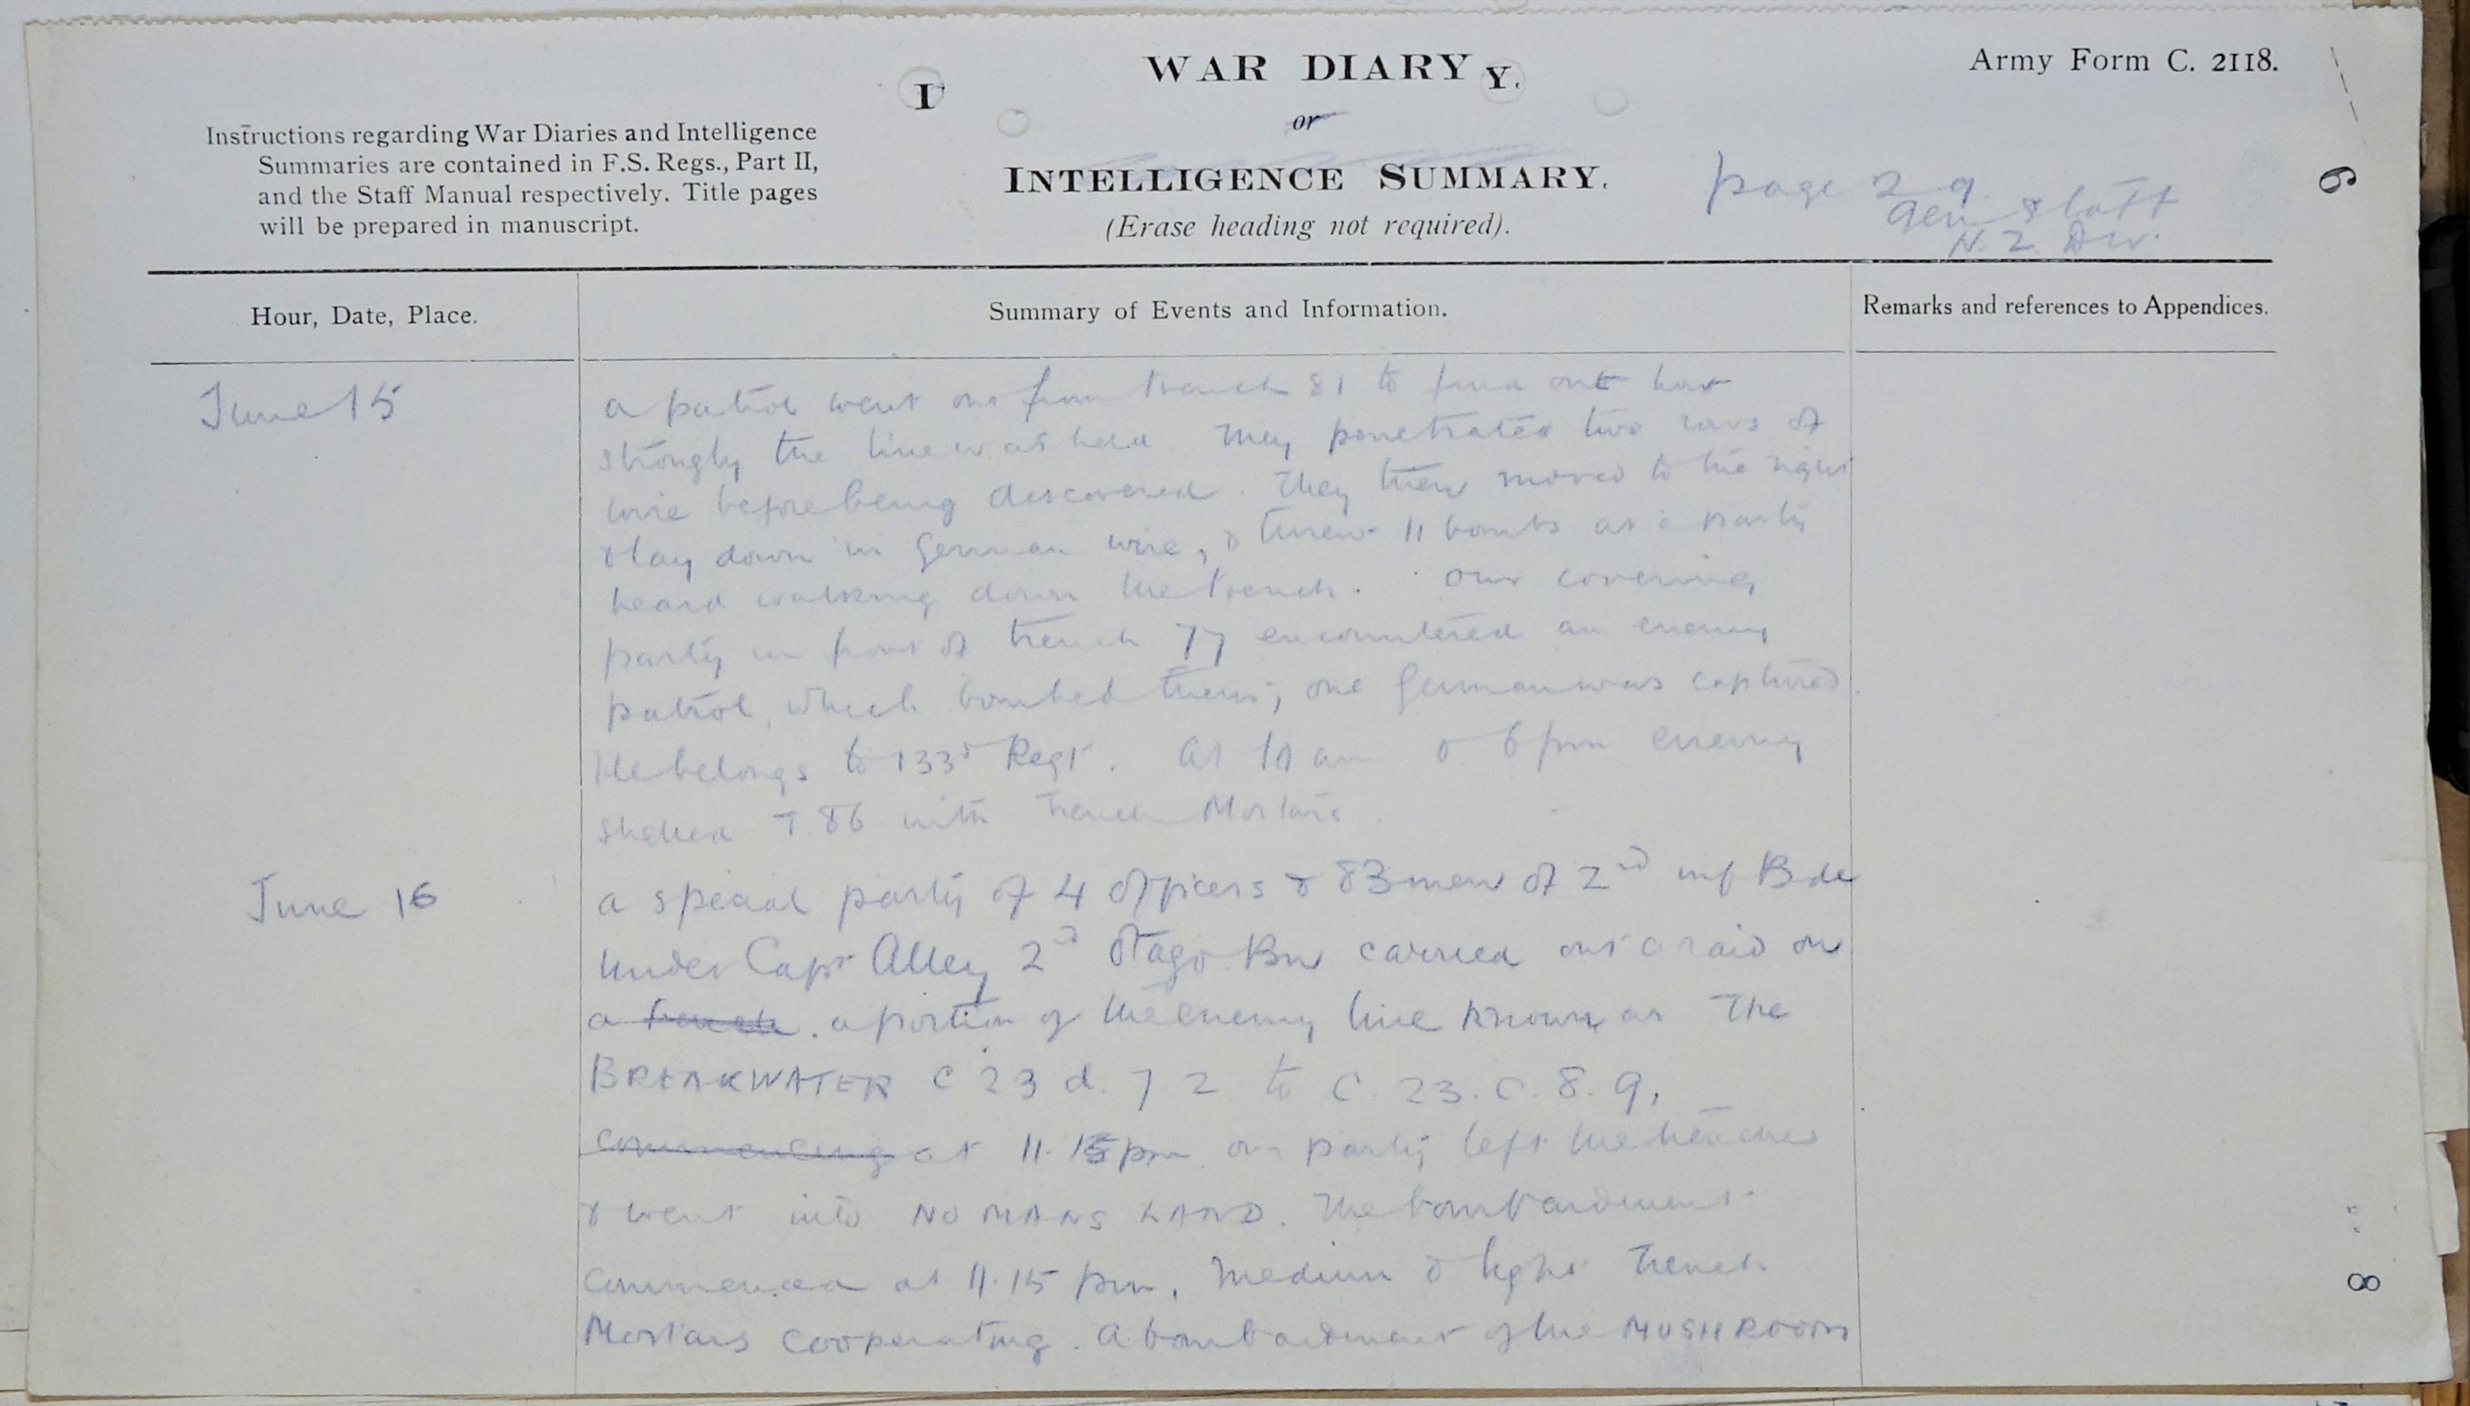 WAR DIARY Y.
I
Army Form C. 2118.
or
Instructions regarding War Diaries and Intelligence
Summaries are contained in F.S. Regs., Part II,
and the Staff Manual respectively. Title pages
will be prepared in manuscript.
INTELLIGENCE SUMMARY.
(Erase heading not required).
page 29
Gen Staff
N.Z Div.
9
Hour, Date, Place.
Summary of Events and Information.
Remarks and references to Appendices.
June 15
a patrol went out from trench 81 to find out how
strongly the line was held. They penetrated two rows of
wire before being discovered. They then moved to the right
& lay down in German wire, & threw 11 bombs at a party
heard walking down the trench. Our covering
party in front of trench 77 encountered an enemy
patrol, which bombed them; one German was captured.
He belongs to 133d Regt. At 10 am & 6 pm enemy
shelled T 86 with Trench Mortars.
June 16
a special party of 4 officers & 83 men of 2nd inf Bde
under Capt Alley 2d Otago Bn carried out a raid on
a trench. a portion of the enemy line known as The
BREAKWATER C 23 d. 7 2 to C. 23. C. 8. 9,
commencing at 11.15 pm our party left the trenches
& went into NO MANS LAND. The bombardment
commenced at 11.15 pm, Medium & light Trench
Mortars cooperating. A bombardment of the MUSHROOM
8